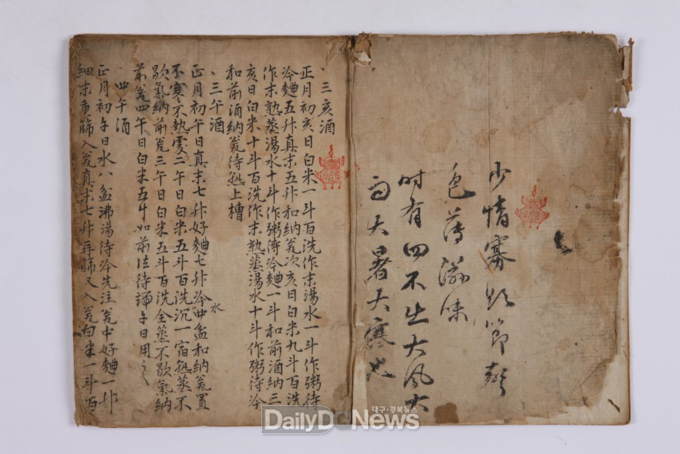 少情寡慾節聲
色薄滋味
時有四不出大風大
雨大暑大寒也
三亥酒
正月初亥日白米一斗百洗作末湯水一斗作粥待
冷麯五升真末五升和納瓮次亥日白米九斗百洗
作末熟蒸湯水十斗作粥待冷麯一斗和前酒納三
亥日白米十斗百洗作末熟蒸湯水十斗作粥待冷
和前酒納瓮待熟上槽
三午酒
正月初午日真末七升好麯七升冷水四盆和納瓮置
不寒不熱處二午日白米五斗百洗沉一宿熟蒸不
歇氣納前瓮三午日白米五斗百洗全蒸不歇氣納
前瓮四午日白米五斗如前法待端午日用之
四午酒
正月初午日水八盆沸湯待冷先注瓮中好麯一升
細末重篩入瓮真末七升再篩又入瓮白米一斗百
대구·경북뉴스
DailyDgNews